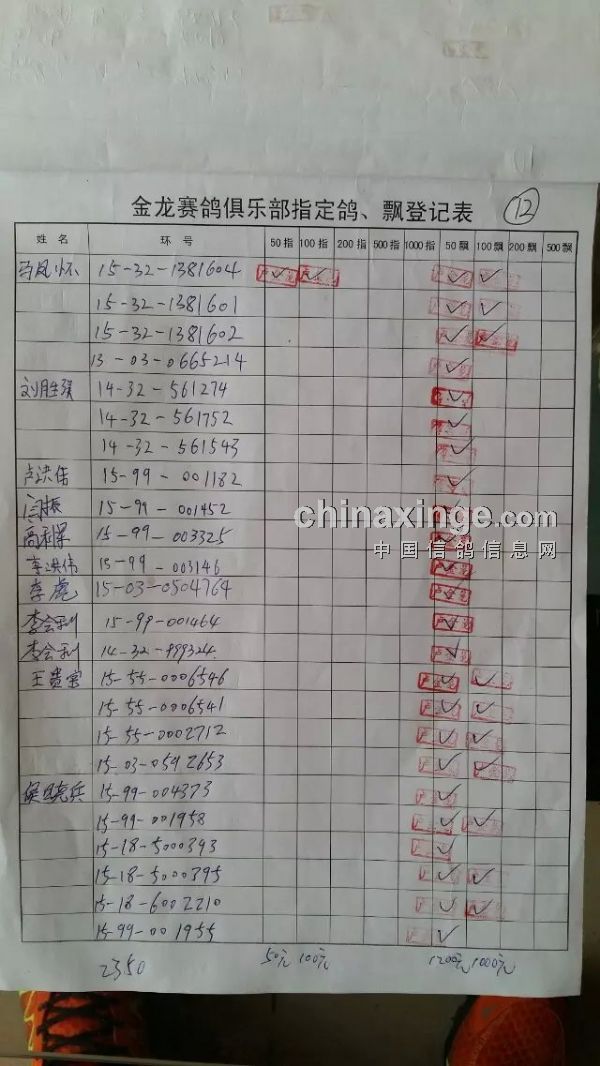 金龙赛鸽俱乐部指定鸽、飘登记表 12
姓名 环号 50指 100指 200指 500指 1000指 50飘 100飘 200飘 500飘
马凤怀 15-32-1381604 ✓ ✓ ✓ ✓
15-32-1381601 ✓ ✓
15-32-1381602 ✓ ✓
13-03-0665214 ✓
刘胜强 14-32-561274 ✓
14-32-561752 ✓
14-32-561543 ✓
卢洪伟 15-99-001182 ✓
闫振 15-99-001452
chinaxinge.com
高利军 15-99-003325
中国信鸽信息网
李洪伟 15-99-003146 ✓
李虎 15-03-0504764 ✓
李会利 15-99-001464 ✓
李会利 14-32-999324 ✓
王贵宝 15-55-0006546 ✓ ✓
15-55-0006541 ✓ ✓
15-55-0002712 ✓ ✓
15-03-0592653 ✓ ✓
侯晓兵 15-99-004373 ✓
15-99-001958 ✓ ✓
15-18-5000393 ✓
15-18-5000395 ✓ ✓
15-18-6002210 ✓ ✓
15-99-001955 ✓
2350 50元 100元 1200元 1000元